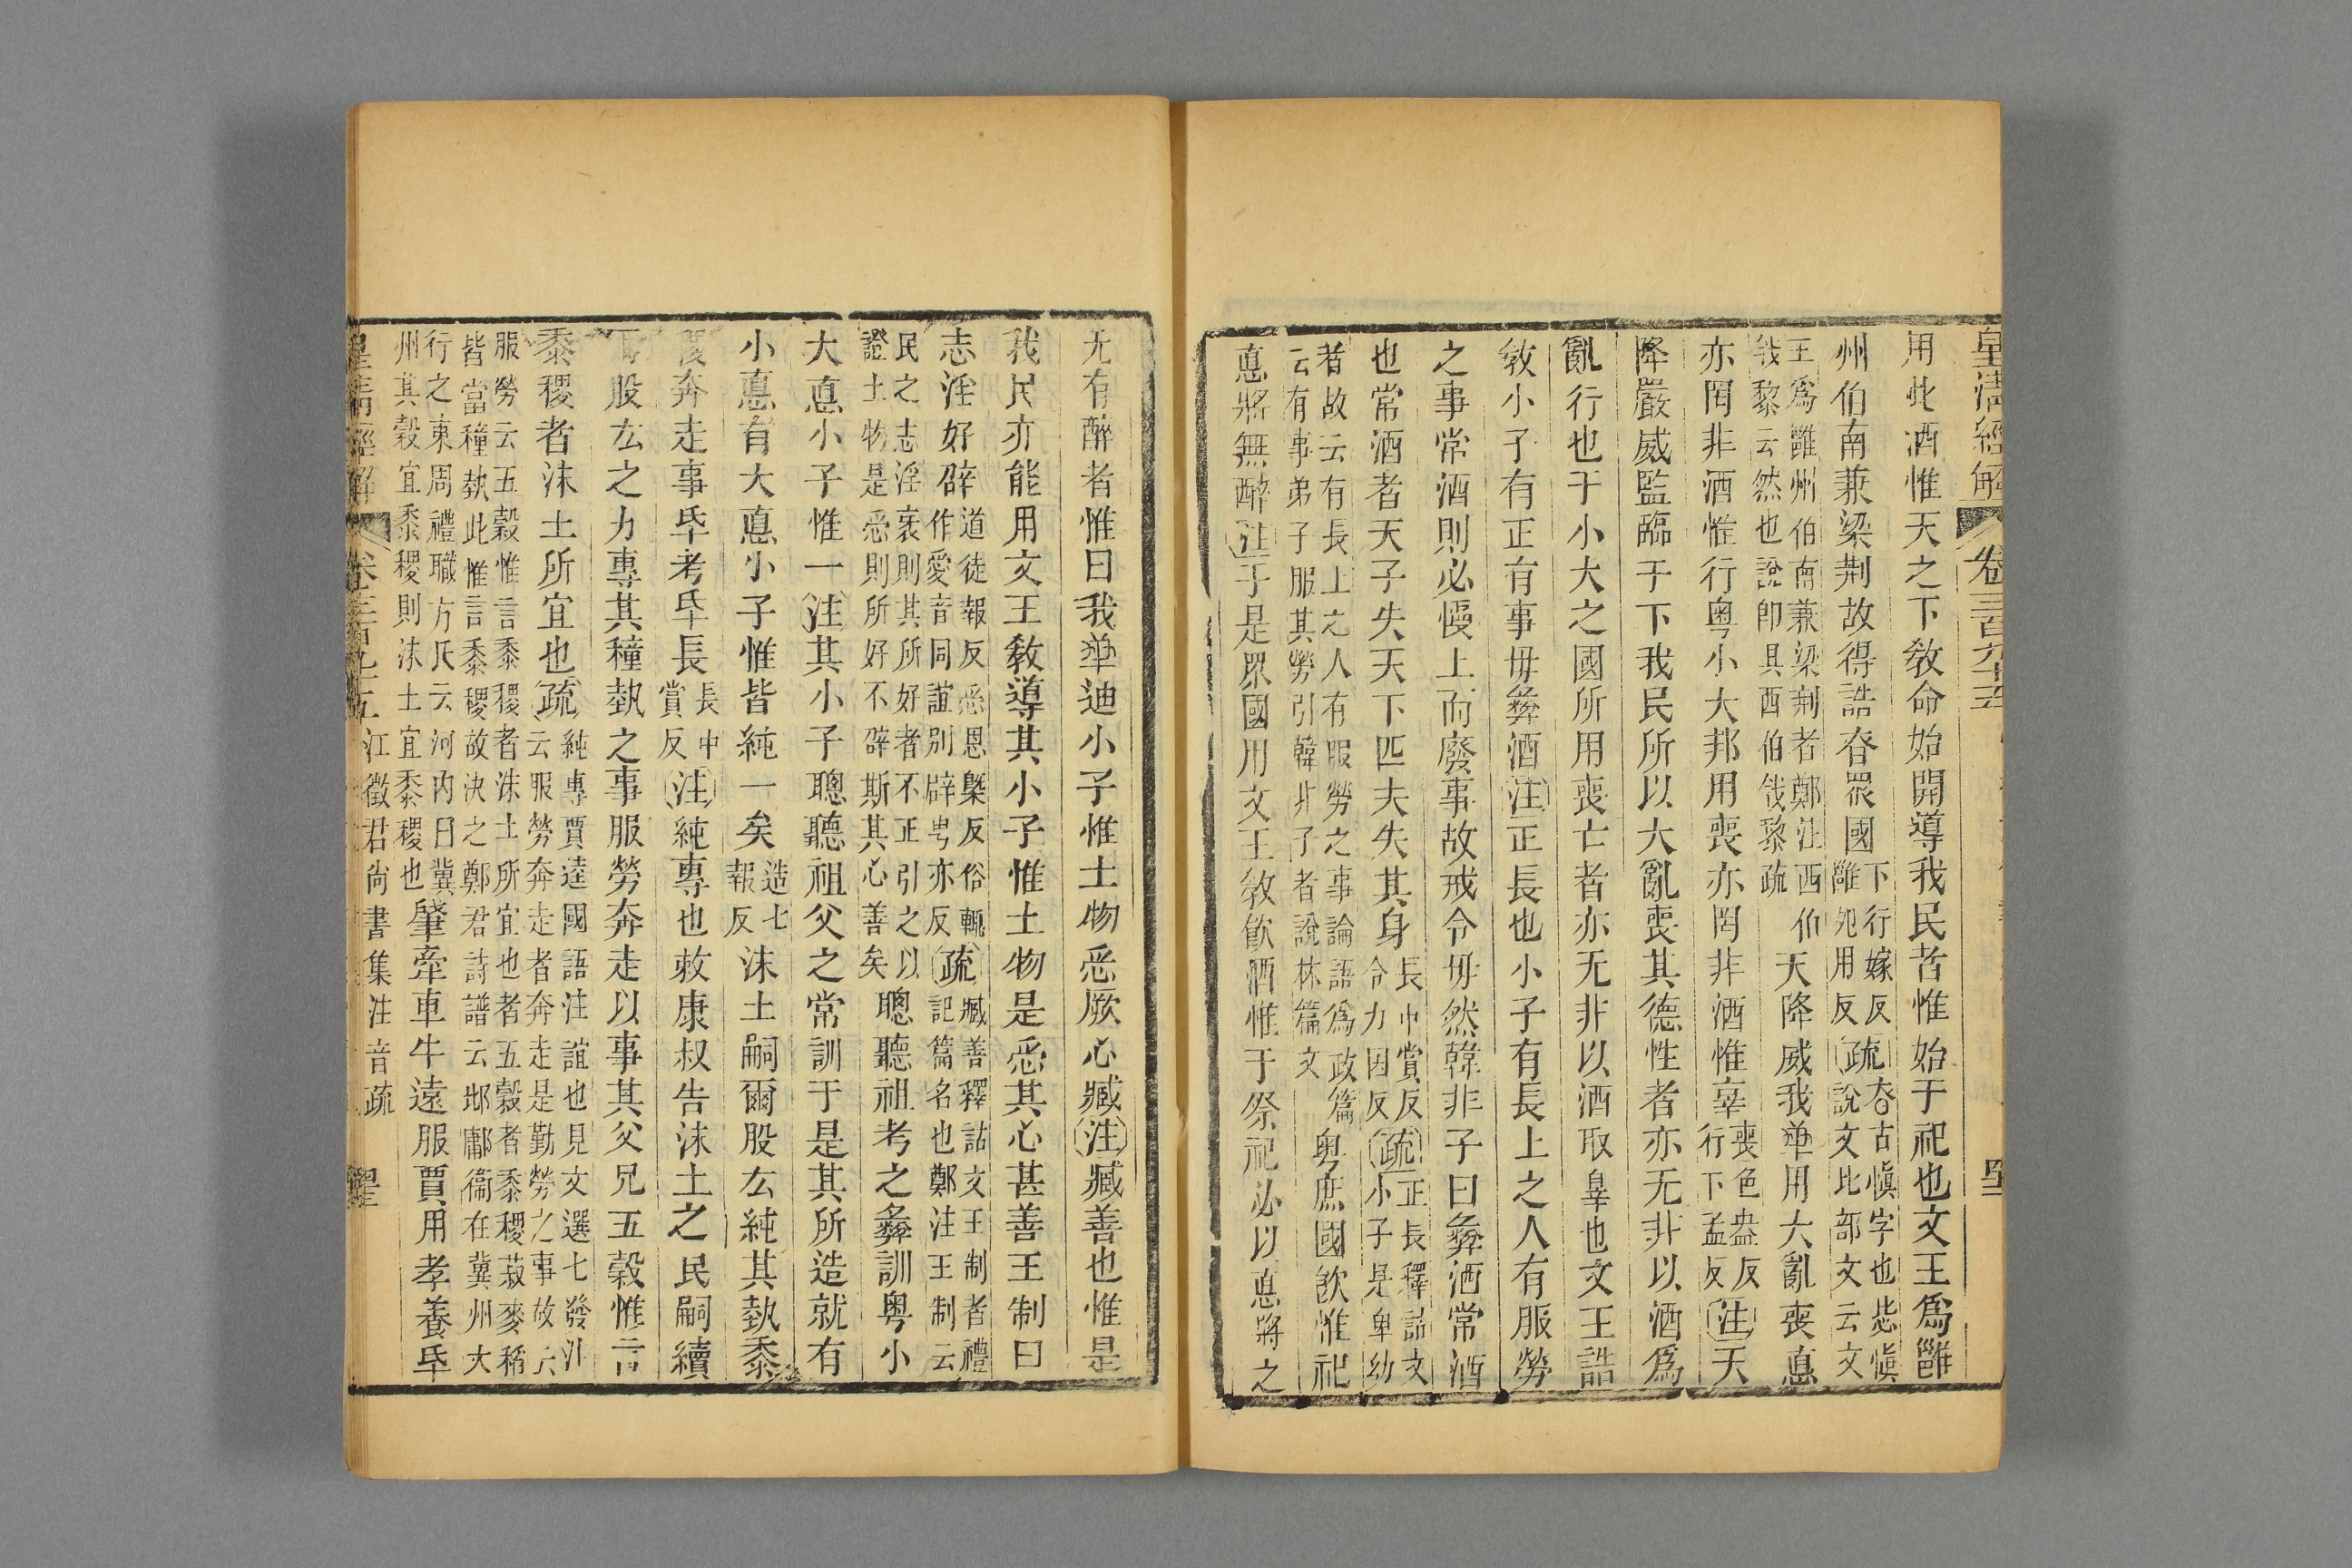 皇清經解 卷三百九十五
用此酒惟天之下敎命始開導我民者惟始于祀也文王爲雝
州伯南兼梁荆故得誥昚眾國下行嫁反雝夗用反(疏)昚古愼字也毖愼說文比部文云文
王爲雝州伯南兼梁荆者鄭注西伯戡黎云然也說即具西伯戡黎疏天降威我民用大亂喪悳
亦罔非酒惟行粤小大邦用喪亦罔非酒惟辠喪色盎反行下孟反(注)天
降嚴威監臨于下我民所以大亂喪其德性者亦无非以酒爲
亂行也于小大之國所用喪亡者亦无非以酒取辠也文王誥
敎小子有正有事毋彝酒(注)正長也小子有長上之人有服勞
之事常酒則必慢上而廢事故戒令毋然韓非子曰彝酒常酒
也常酒者天子失天下匹夫失其身長中賞反令力因反(疏)正長釋詁文小子是卑幼
者故云有長上之人有服勞之事論語爲政篇云有事弟子服其勞引韓非子者說林篇文粤庶國飮惟祀
悳將無醉(注)于是眾國用文王敎飮酒惟于祭祀必以悳將之
无有醉者惟曰我民迪小子惟土物悉厥心臧(注)臧善也惟是
我民亦能用文王敎導其小子惟土物是悉其心甚善王制曰
志淫好辟道徒報反悉恩槩反俗輒作愛音同誼別辟甹亦反(疏)臧善釋詁文王制者禮記篇名也鄭注王制云
民之志淫衺則其所好者不正引之以證土物是悉則所好不辟斯其心善矣聰聽祖考之彝訓粤小
大悳小子惟一(注)其小子聰聽祖父之常訓于是其所造就有
小悳有大悳小子惟皆純一矣造七報反沬土嗣爾股厷純其埶黍
稷奔走事氒考氒長長中賞反(注)純專也敕康叔告沬土之民嗣續
爾股厷之力專其種埶之事服勞奔走以事其父兄五穀惟言
黍稷者沬土所宜也(疏)純專賈逵國語注誼也見文選七發注云服勞奔走者奔走是勤勞之事故云
服勞云五穀惟言黍稷者沬土所宜也者五穀者黍稷菽麥稻皆當種埶此惟言黍稷故決之鄭君詩譜云邶鄘衞在冀州大
行之東周禮職方氏云河内曰冀州其穀宜黍稷則沬土宜黍稷也肈牽車牛遠服賈用孝養氒
皇清經解 卷三百九十五 江徵君尚書集注音疏